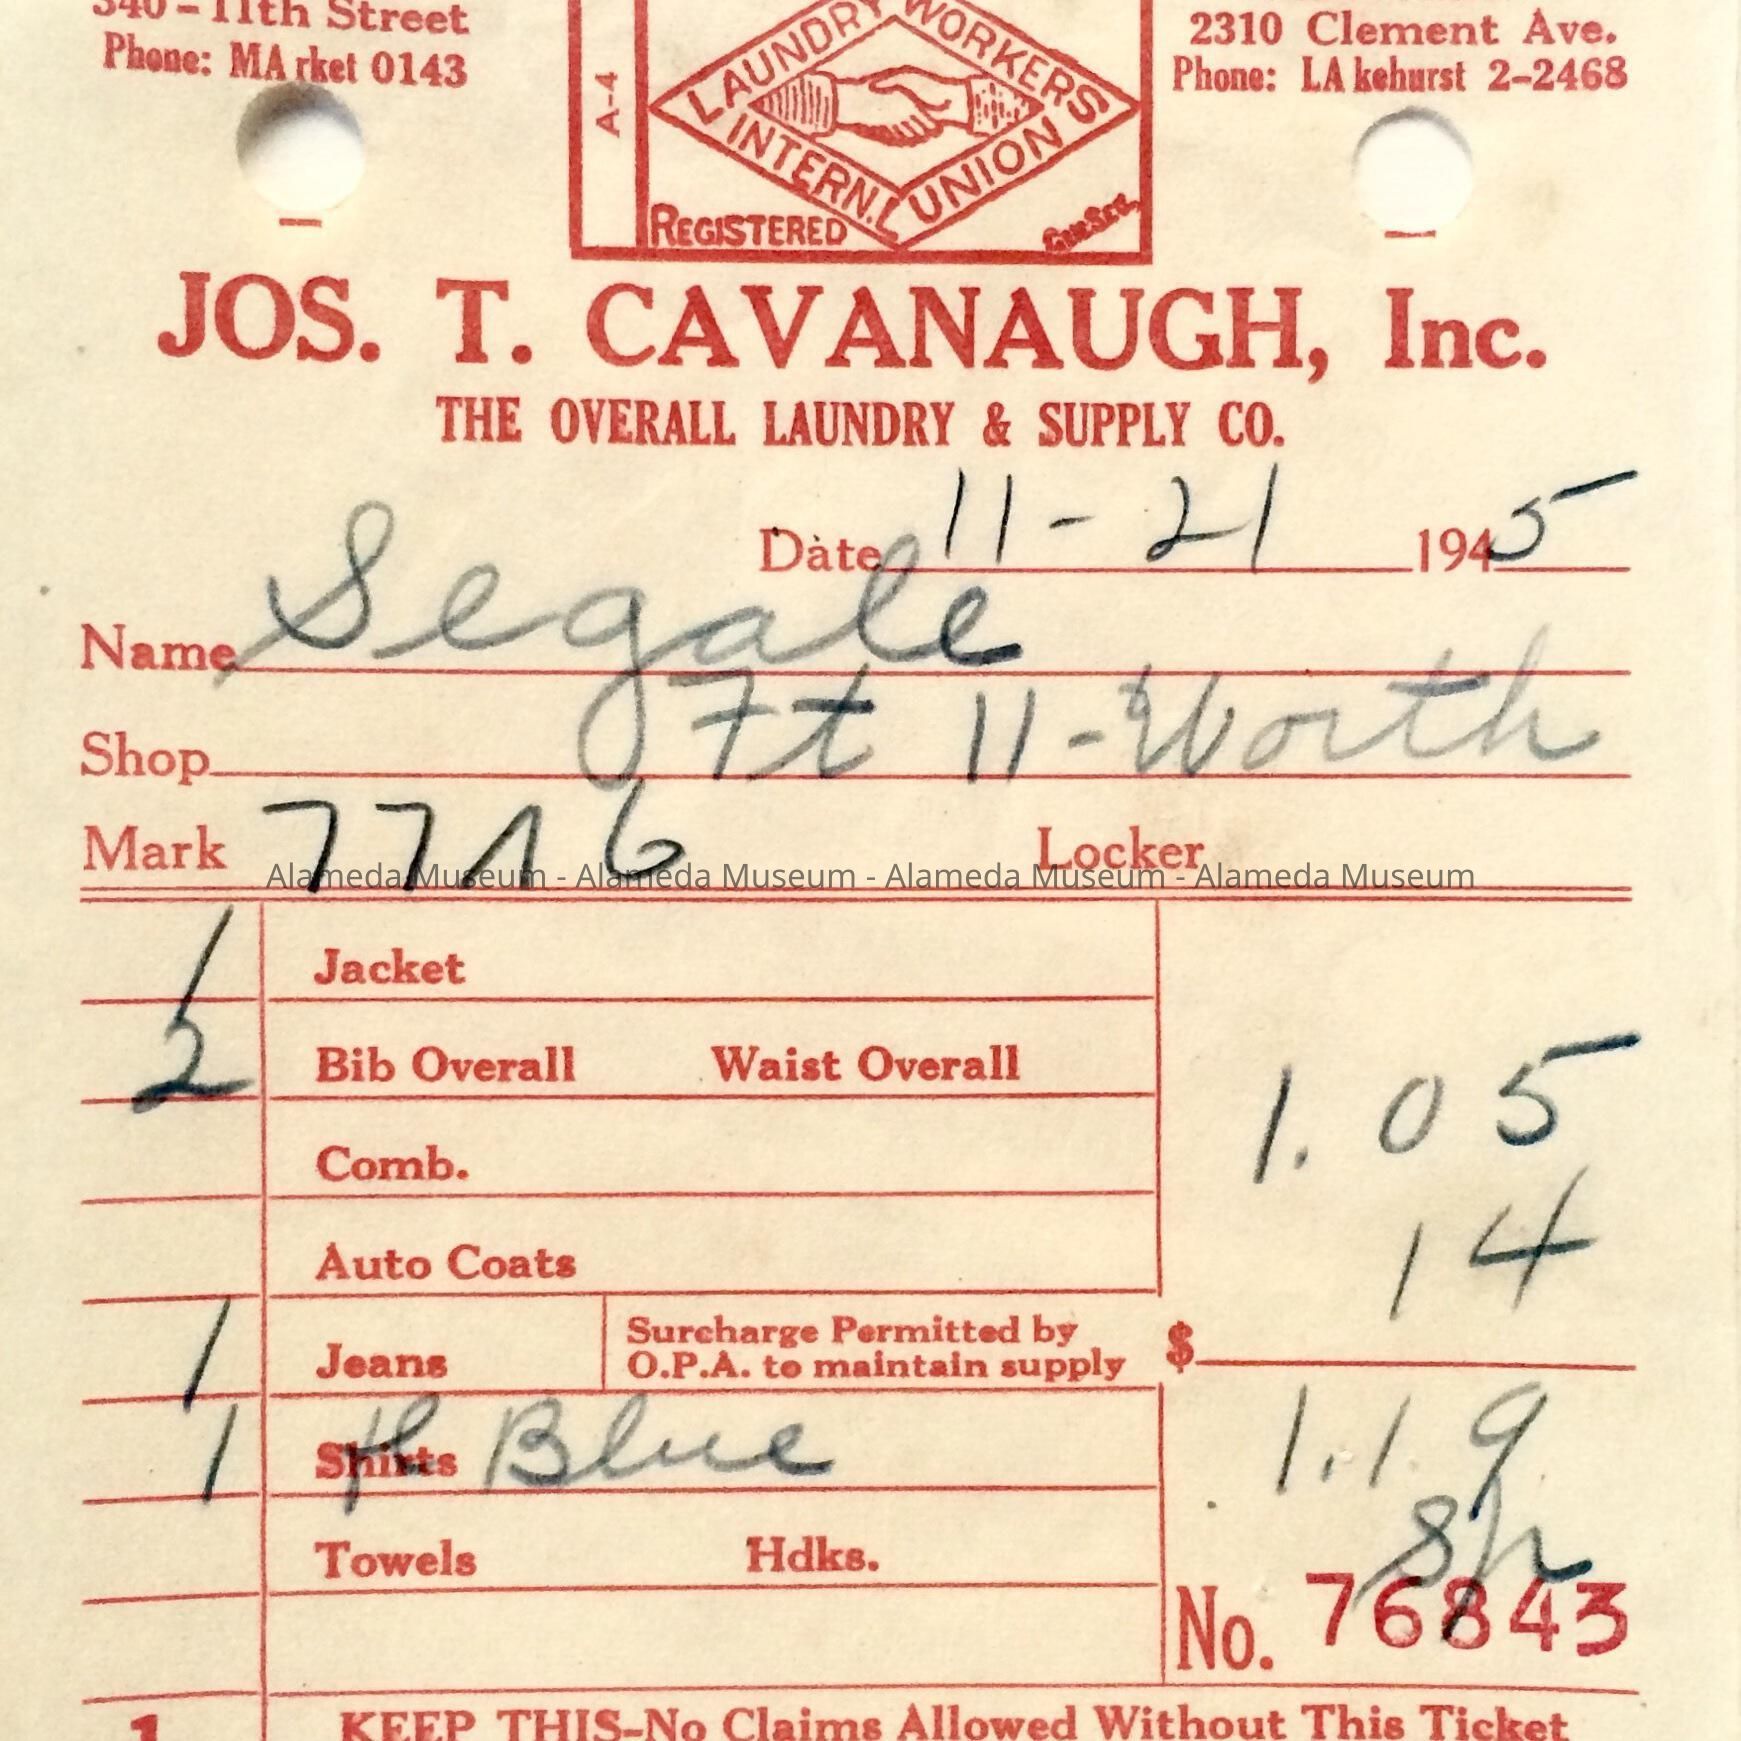 340-11th Street
Phone: MArket 0143
2310 Clement Ave.
Phone: LAkehurst 2-2468
A-4
LAUNDRY WORKERS
INTERN.L UNION
REGISTERED
JOS. T. CAVANAUGH, Inc.
THE OVERALL LAUNDRY & SUPPLY CO.
Date 11-21 1945
Name Segale
Shop Ft 11-Worth
Mark 77A6 Locker
Alameda Museum - Alameda Museum - Alameda Museum - Alameda Museum
1 Jacket
2 Bib Overall Waist Overall
1.05
Comb.
14
Auto Coats
1 Jeans Surcharge Permitted by
O.P.A. to maintain supply $
1 Shirts Blue
1.19
Towels Hdks.
No. 76843
1 KEEP THIS-No Claims Allowed Without This Ticket